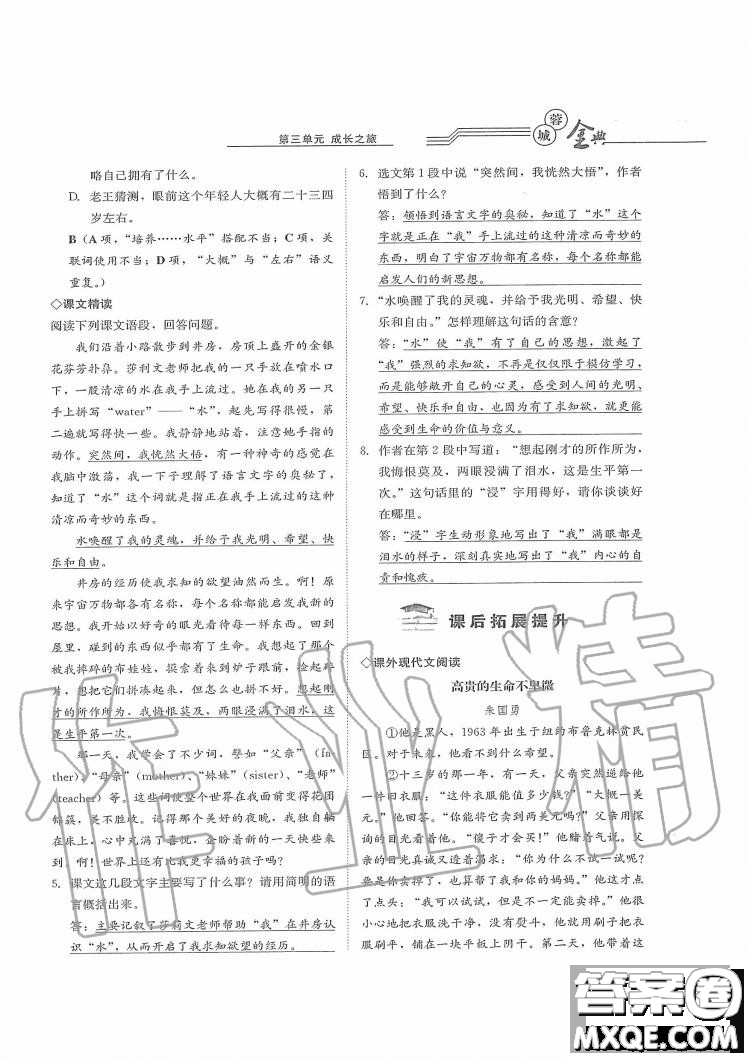 第三单元 成长之旅
蓉城金典
略自己拥有了什么。
D. 老王猜测，眼前这个年轻人大概有二十三四
岁左右。
B（A 项，“培养……水平”搭配不当；C 项，关
联词使用不当；D 项，“大概”与“左右”语义
重复。）
◇课文精读
阅读下列课文语段，回答问题。
我们沿着小路散步到井房，房顶上盛开的金银
花芬芳扑鼻。莎利文老师把我的一只手放在喷水口
下，一股清凉的水在我手上流过。她在我的另一只
手上拼写“water”——“水”，起先写得很慢，第
二遍就写得快一些。我静静地站着，注意她手指的
动作。突然间，我恍然大悟，有种神奇的感觉在我
脑中激荡，我一下子理解了语言文字的奥秘了，
知道了“水”这个词就是指正在我手上流过的这种
清凉而奇妙的东西。
水唤醒了我的灵魂，并给予我光明、希望、快
乐和自由。
井房的经历使我求知的欲望油然而生。啊！原
来宇宙万物都各有名称，每个名称都能启发我新的
思想。我开始以好奇的眼光看待每一样东西。回到
屋里，碰到的东西似乎都有了生命。我想起了那个
被我摔碎的布娃娃，摸索着来到炉子跟前，捡起碎
片，想把它们拼凑起来，但怎么也拼不好。想起刚
才的所作所为，我悔恨莫及，两眼浸满了泪水，这
是生平第一次。
那一天，我学会了不少词，譬如“父亲”（fa-
ther）、“母亲”（mother）、“妹妹”（sister）、“老师”
（teacher）等。这些词使整个世界在我面前变得花团
锦簇，美不胜收。记得那个美好的夜晚，我独自躺
在床上，心中充满了喜悦，企盼着新的一天快些来
到。啊！世界上还有比我更幸福的孩子吗？
5. 课文这几段文字主要写了什么事？请用简明的语
言概括出来。
答：主要记叙了莎莉文老师帮助“我”在井房认
识“水”，从而开启了我求知欲望的经历。
6. 选文第 1 段中说“突然间，我恍然大悟”，作者
悟到了什么？
答：领悟到语言文字的奥秘，知道了“水”这个
字就是正在“我”手上流过的这种清凉而奇妙的
东西，明白了宇宙万物都有名称，每个名称都能
启发人们的新思想。
7. “水唤醒了我的灵魂，并给予我光明、希望、快
乐和自由。”怎样理解这句话的含意？
答：“水”使“我”有了自己的思想，激起了
“我”强烈的求知欲，不再是仅仅限于模仿学习，
而是能够敞开自己的心灵，感受到人间的光明、
希望、快乐和自由，也因为有了求知欲，就更能
感受到生命的价值与意义。
8. 作者在第 2 段中写道：“想起刚才的所作所为，
我悔恨莫及，两眼浸满了泪水，这是生平第一
次。”这句话里的“浸”字用得好，请你谈谈好
在哪里。
答：“浸”字生动形象地写出了“我”满眼都是
泪水的样子，深刻真实地写出了“我”内心的自
责和愧疚。
课后拓展提升
◇课外现代文阅读
高贵的生命不卑微
朱国勇
①他是黑人，1963 年出生于纽约布鲁克林贫民
区。对于未来，他看不到什么希望。
②十三岁的那一年，有一天，父亲突然递给他
一件旧衣服：“这件衣服能值多少钱？”“大概一美
元。”他回答。“你能将它卖到两美元吗？”父亲用探
询的目光看着他。“傻子才会买！”他赌着气说。父
亲的目光真诚又透着渴求：“你为什么不试一试呢？
要是你卖掉了，也算帮了我和你的妈妈。”他这才点
了点头：“我可以试试，但是不一定能卖掉。”他很
小心地把衣服洗干净，没有熨斗，他就用刷子把衣
服刷平，铺在一块平板上阴干。第二天，他带着这
作业精
答案圈
MXQE.COM